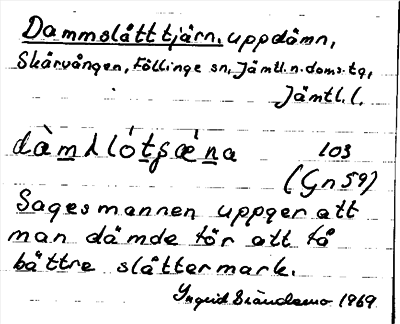 Dammslåtttjärn, uppdämn,
Skärvången, Föllinge sn, Jämtl.n.doms.tg,
Jämtl.l.
dàmʌlótʂæ̀na 103
(Gn 59)
Sagesmannen uppger att
man dämde för att få
bättre slåttermark.
Ingrid 1969